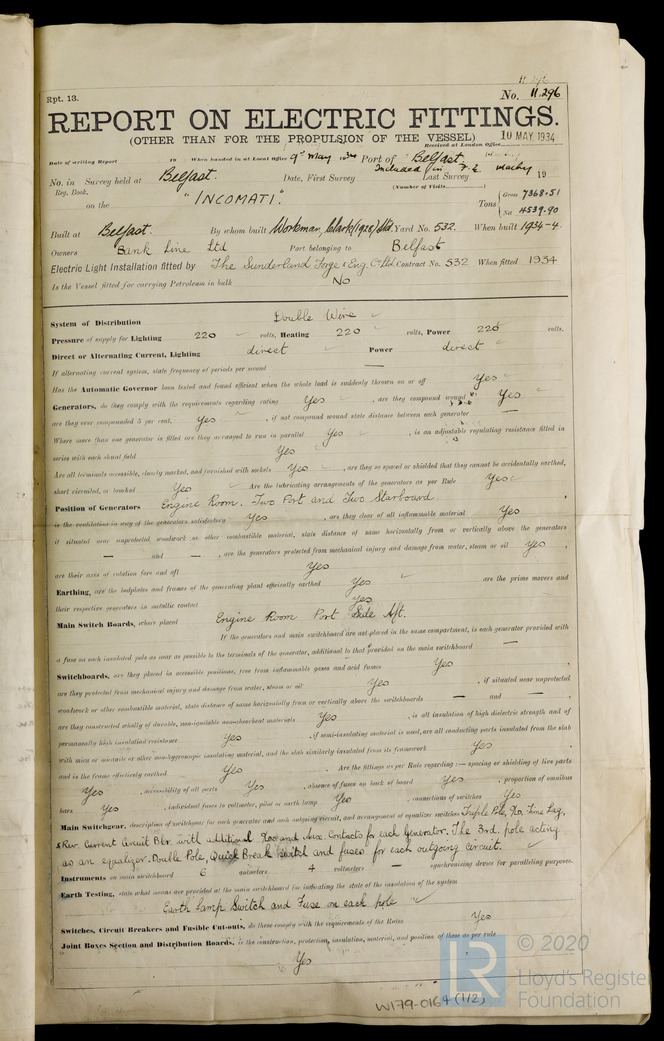 Rpt. 13.
No. 11.296
REPORT ON ELECTRIC FITTINGS.
(OTHER THAN FOR THE PROPULSION OF THE VESSEL)
10 MAY 1934
Received at London Office
Date of writing Report 19 When handed in at Local Office 9th May 1934 Port of Belfast.
No. in Survey held at Belfast. Date, First Survey Included in Last Survey 19
Reg. Book. (Number of Visits)
on the "INCOMATI". Tons Gross 7368.51
Net 4539.90
Built at Belfast. By whom built Workman, Clark (1928) Ltd. Yard No. 532. When built 1934-4.
Owners Bank Line Ltd Port belonging to Belfast
Electric Light Installation fitted by The Sunderland Forge & Eng. Co Ltd. Contract No. 532 When fitted 1934
Is the Vessel fitted for carrying Petroleum in bulk No
System of Distribution Double Wire
Pressure of supply for Lighting 220 volts, Heating 220 volts, Power 220 volts.
Direct or Alternating Current, Lighting direct Power direct
If alternating current system, state frequency of periods per second —
Has the Automatic Governor been tested and found efficient when the whole load is suddenly thrown on or off Yes
Generators, do they comply with the requirements regarding rating Yes, are they compound wound Yes
are they over compounded 5 per cent. Yes, if not compound wound state distance between each generator —
Where more than one generator is fitted are they arranged to run in parallel Yes, is an adjustable regulating resistance fitted in
series with each shunt field Yes
Are all terminals accessible, clearly marked, and furnished with sockets Yes, are they so spaced or shielded that they cannot be accidentally earthed,
short circuited, or touched Yes Are the lubricating arrangements of the generators as per Rule Yes
Position of Generators Engine Room. Two Port and Two Starboard.
is the ventilation in way of the generators satisfactory Yes, are they clear of all inflammable material Yes
if situated near unprotected woodwork or other combustible material, state distance of same horizontally from or vertically above the generators
— and —, are the generators protected from mechanical injury and damage from water, steam or oil Yes,
are their axes of rotation fore and aft Yes
Earthing, are the bedplates and frames of the generating plant efficiently earthed Yes are the prime movers and
their respective generators in metallic contact Yes
Main Switch Boards, where placed Engine Room Port Side Aft.
If the generators and main switchboard are not placed in the same compartment, is each generator provided with
a fuse on each insulated pole as near as possible to the terminals of the generator, additional to that provided on the main switchboard —
Switchboards, are they placed in accessible positions, free from inflammable gases and acid fumes Yes,
are they protected from mechanical injury and damage from water, steam or oil Yes, if situated near unprotected
woodwork or other combustible material, state distance of same horizontally from or vertically above the switchboards — and —,
are they constructed wholly of durable, non-ignitable non-absorbent materials Yes, is all insulation of high dielectric strength and of
permanently high insulation resistance Yes, if semi-insulating material is used, are all conducting parts insulated from the slab
with mica or micanite or other non-hygroscopic insulating material, and the slab similarly insulated from its framework Yes,
and is the frame effectively earthed Yes. Are the fittings as per Rule regarding:— spacing or shielding of live parts
Yes, accessibility of all parts Yes, absence of fuses on back of board Yes, proportion of omnibus
bars Yes, individual fuses to voltmeter, pilot or earth lamp Yes, connections of switches Yes
Main Switchgear, description of switchgear for each generator and each outgoing circuit, and arrangement of equalizer switches Triple Pole, Time Lag,
& Rev. Current Circuit Bkr. with additional and Contacts for each Generator. The 3rd. pole acting
as an equalizer. Double Pole, Quick Break switch and fuses for each outgoing circuit.
Instruments on main switchboard 6 ammeters 4 voltmeters — synchronising device for paralleling purposes.
Earth Testing, state what means are provided at the main switchboard for indicating the state of the insulation of the system
Earth Lamp Switch and Fuse on each pole
Switches, Circuit Breakers and Fusible Cut-outs, do these comply with the requirements of the Rules Yes
Joint Boxes Section and Distribution Boards, is the construction, protection, insulation, material, and position of these as per rule
Yes
LR © 2020
Lloyd's Register
Foundation
W179-0164 (1/2)